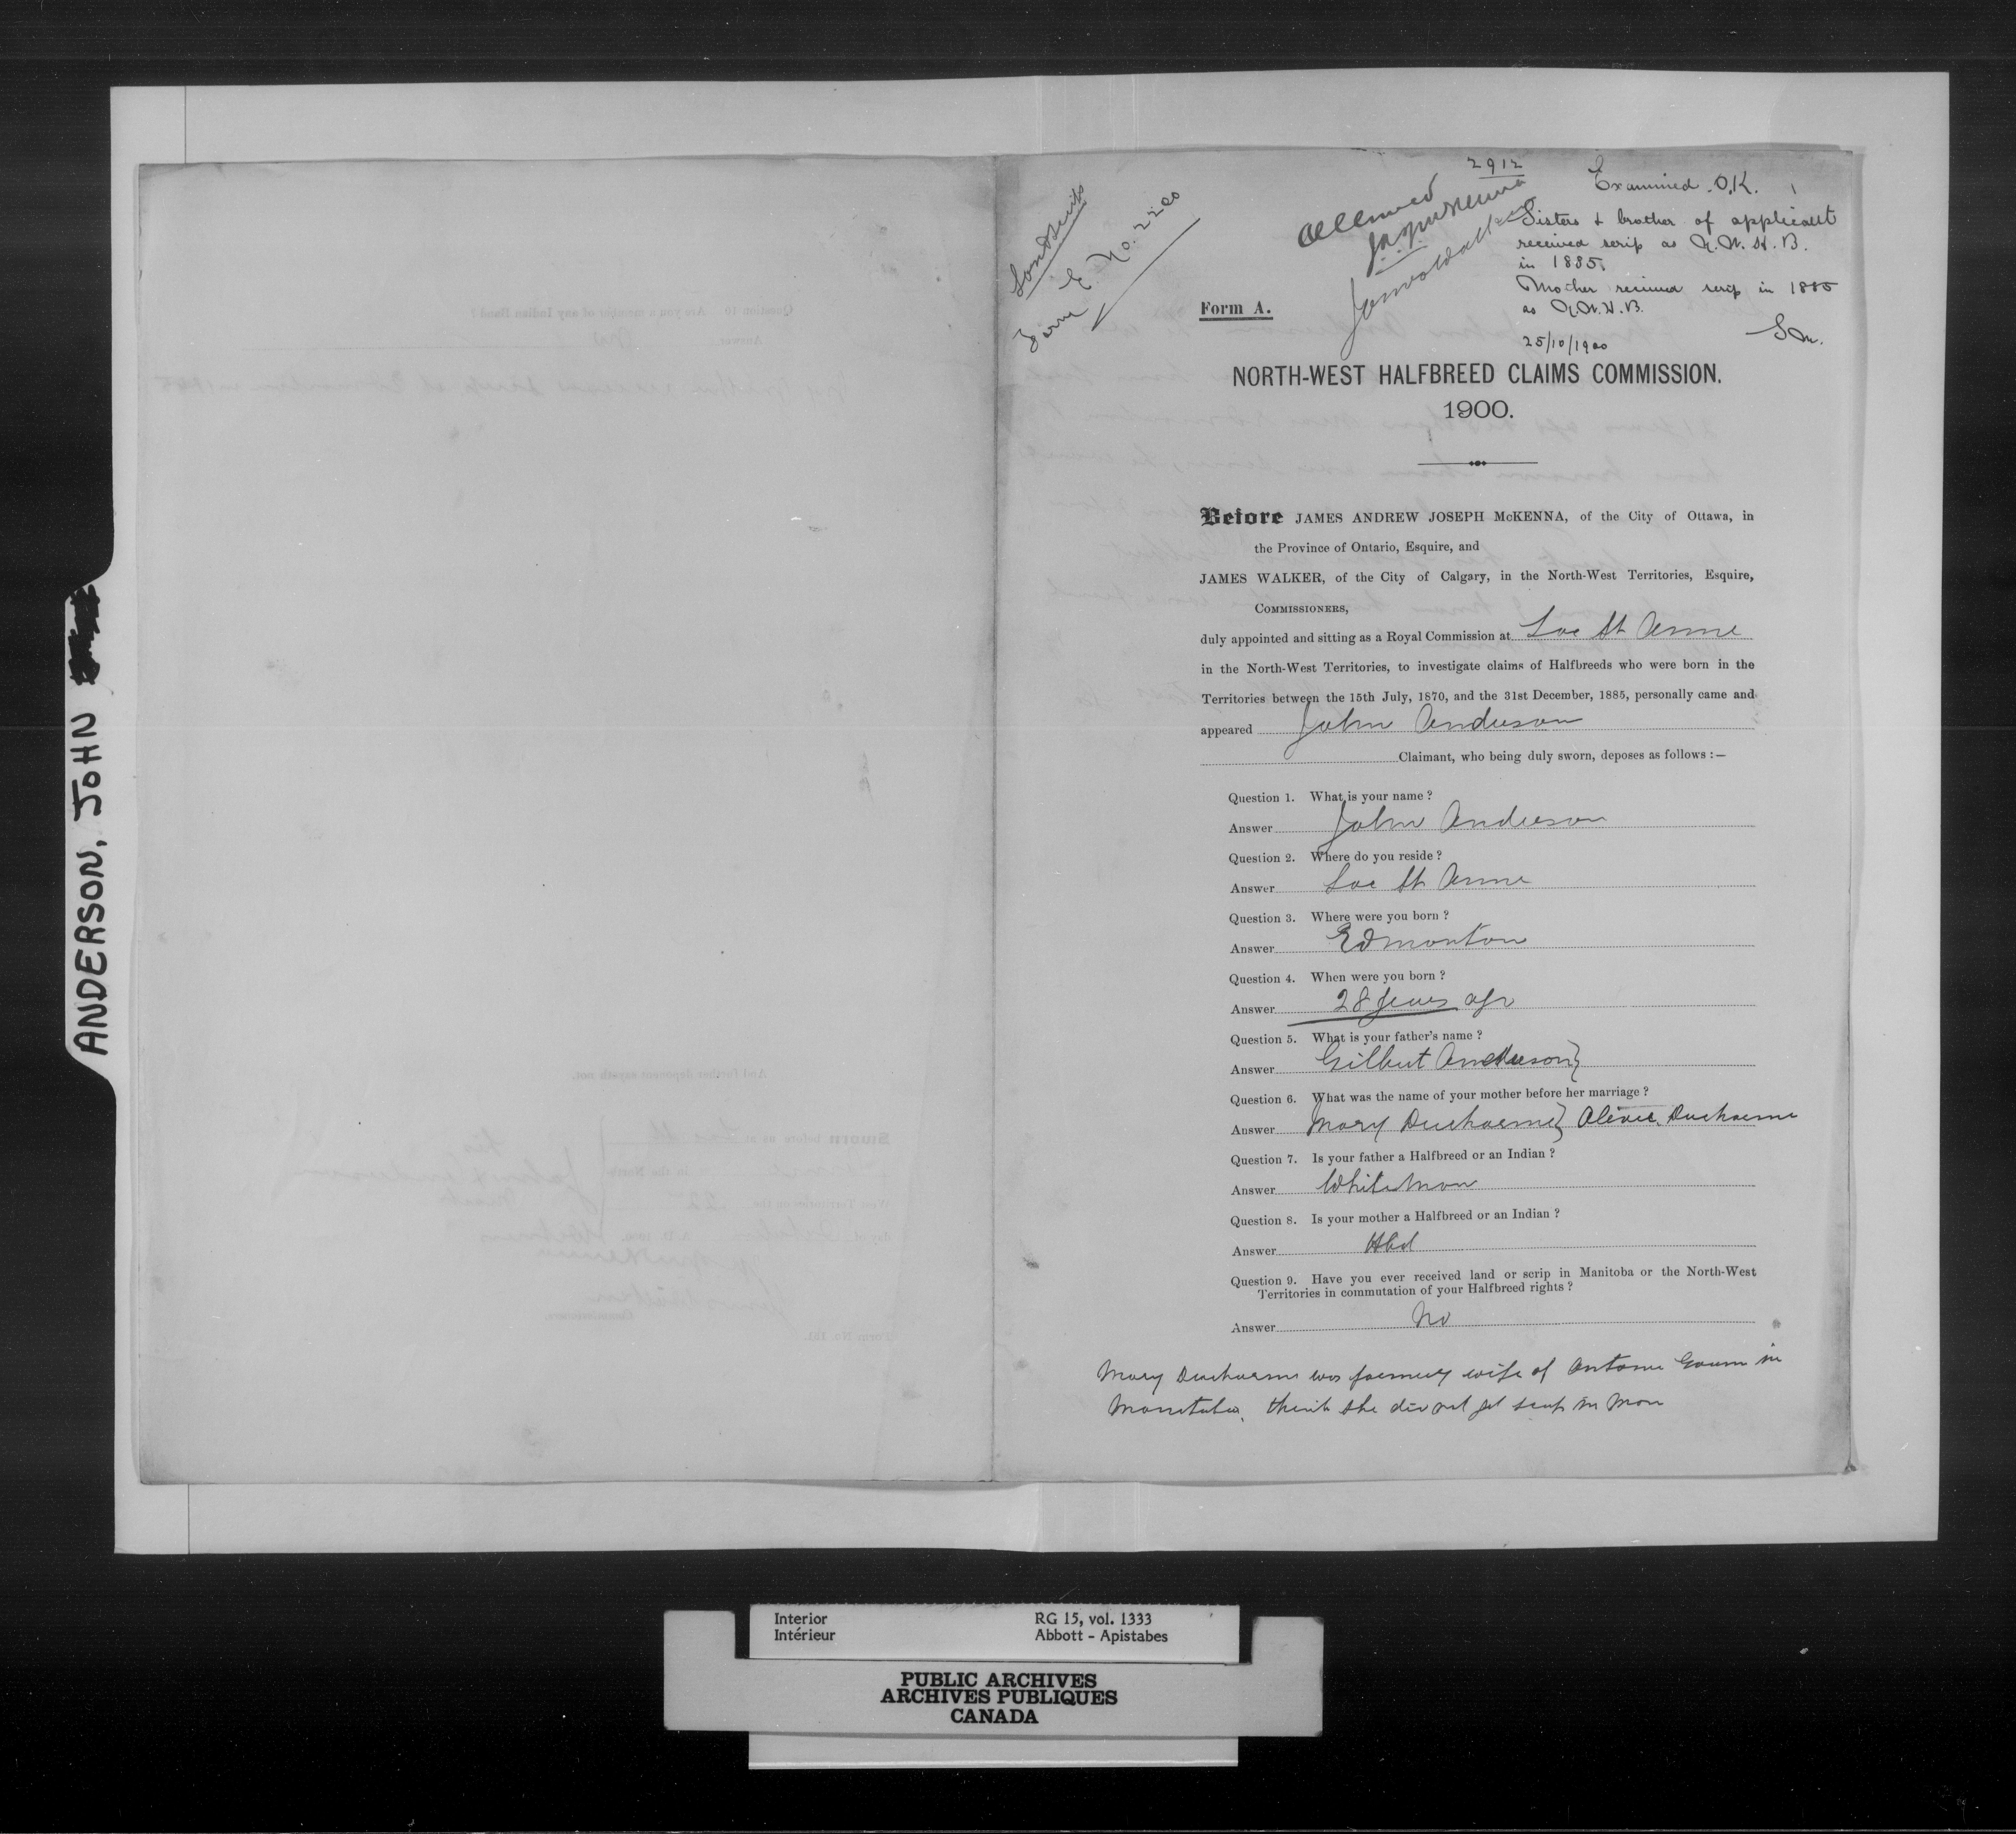 ANDERSON, JOHN
Land Scrip
Form E. No. 2200
2912
Allowed
J.A.J. McKenna
Jas Walker
Examined. O.K.
Sisters & brother of applicant
received scrip as N.W.H.B.
in 1885.
Mother received scrip in 1885
as N.W.H.B.
25/10/1900
Form A.
NORTH-WEST HALFBREED CLAIMS COMMISSION.
1900.
Before JAMES ANDREW JOSEPH McKENNA, of the City of Ottawa, in
the Province of Ontario, Esquire, and
JAMES WALKER, of the City of Calgary, in the North-West Territories, Esquire,
COMMISSIONERS,
duly appointed and sitting as a Royal Commission at Lac St Anne
in the North-West Territories, to investigate claims of Halfbreeds who were born in the
Territories between the 15th July, 1870, and the 31st December, 1885, personally came and
appeared John Anderson
Claimant, who being duly sworn, deposes as follows :—
Question 1. What is your name ?
Answer John Anderson
Question 2. Where do you reside ?
Answer Lac St Anne
Question 3. Where were you born ?
Answer Edmonton
Question 4. When were you born ?
Answer 28 years ago
Question 5. What is your father's name ?
Answer Gilbert Anderson }
Question 6. What was the name of your mother before her marriage ?
Answer Mary Ducharme } Ducharme
Question 7. Is your father a Halfbreed or an Indian ?
Answer White man
Question 8. Is your mother a Halfbreed or an Indian ?
Answer Hbd
Question 9. Have you ever received land or scrip in Manitoba or the North-West
Territories in commutation of your Halfbreed rights ?
Answer No
Mary Ducharme was formerly wife of Antoine in
Manitoba. think she did not get scrip in Man
Interior
Intérieur
RG 15, vol. 1333
Abbott - Apistabes
PUBLIC ARCHIVES
ARCHIVES PUBLIQUES
CANADA